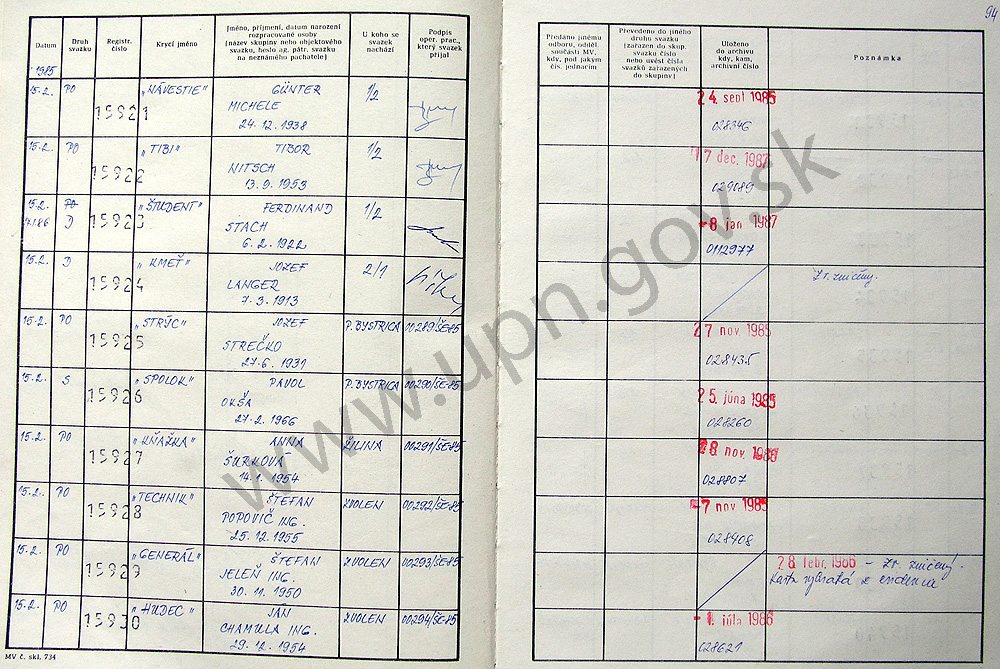 94
Datum
Druh svazku
Registr. číslo
Krycí jméno
Jméno, příjmení, datum narození
rozpracované osoby
(název skupiny nebo objektového
svazku, heslo ag. pátr. svazku
na neznámého pachatele)
U koho se
svazek
nachází
Podpis
oper. prac.,
který svazek
přijal
Předáno jinému
odboru, odděl.
součásti MV,
kdy, pod jakým
čís. jednacím
Převedeno do jiného
druhu svazku
(zařazen do skup.
svazku číslo
nebo uvést čísla
svazků zařazených
do skupiny)
Uloženo
do archivu
kdy, kam,
archivní číslo
Poznámka
1985
15.2. PO 15921 "NÁVESTIE" GÜNTER 1/2 24. sept 1985
MICHELE
24.12.1938 028346
15.2. PO 15922 "TIBI" TIBOR 1/2 17 dec. 1987
NITSCH
13.9.1953 029089
15.2. PO 15923 "ŠTUDENT" FERDINAND 1/2 -8 jan 1987
7.1.86 D STACH
6.2.1922 0112977
15.2. D 15924 "KMEŤ" JOZEF 2/1 Zv. zničený.
LANGER
7.3.1913
15.2. PO 15925 "STRÝC" JOZEF P. BYSTRICA 00289/ŠE-85 27 nov 1985
STREČKO
27.6.1931 028435
15.2. S 15926 "SPOLOK" PAVOL P. BYSTRICA 00290/ŠE-85 25. júna 1985
OKŠA
27.2.1966 028260
15.2. PO 15927 "KŇAŽKA" ANNA ŽILINA 00291/ŠE-85 28 nov.
ŠURKOVÁ
14.1.1954 028807
15.2. PO 15928 "TECHNIK" ŠTEFAN ZVOLEN 00292/ŠE-85 -7 nov 1985
POPOVIČ ING.
25.12.1955 028408
15.2. PO 15929 "GENERÁL" ŠTEFAN ZVOLEN 00293/ŠE-85 28. febr. 1986 - Zv. zničený.
JELEŇ ING. Karta vybratá z evidencie
30.11.1950
15.2. PO 15930 "HUDEC" JÁN ZVOLEN 00294/ŠE-85 -1 júla 1986
CHAMULA ING.
29.12.1954 028621
MV č. skl. 734
www.upn.gov.sk